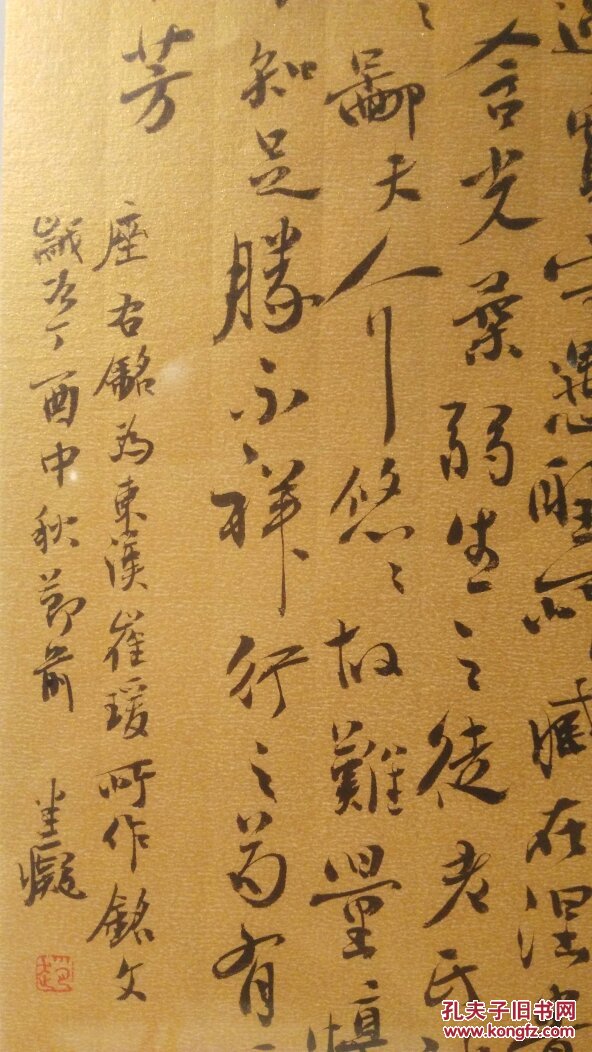 過實守愚聖所臧在涅貴
含光柔弱生之徒老氏
々鄙夫介悠々故難量慎
知足勝不祥行之苟有
芳
座右銘為東漢崔瑗所作銘文
歲次丁酉中秋節前
孔夫子旧书网
www.kongfz.com